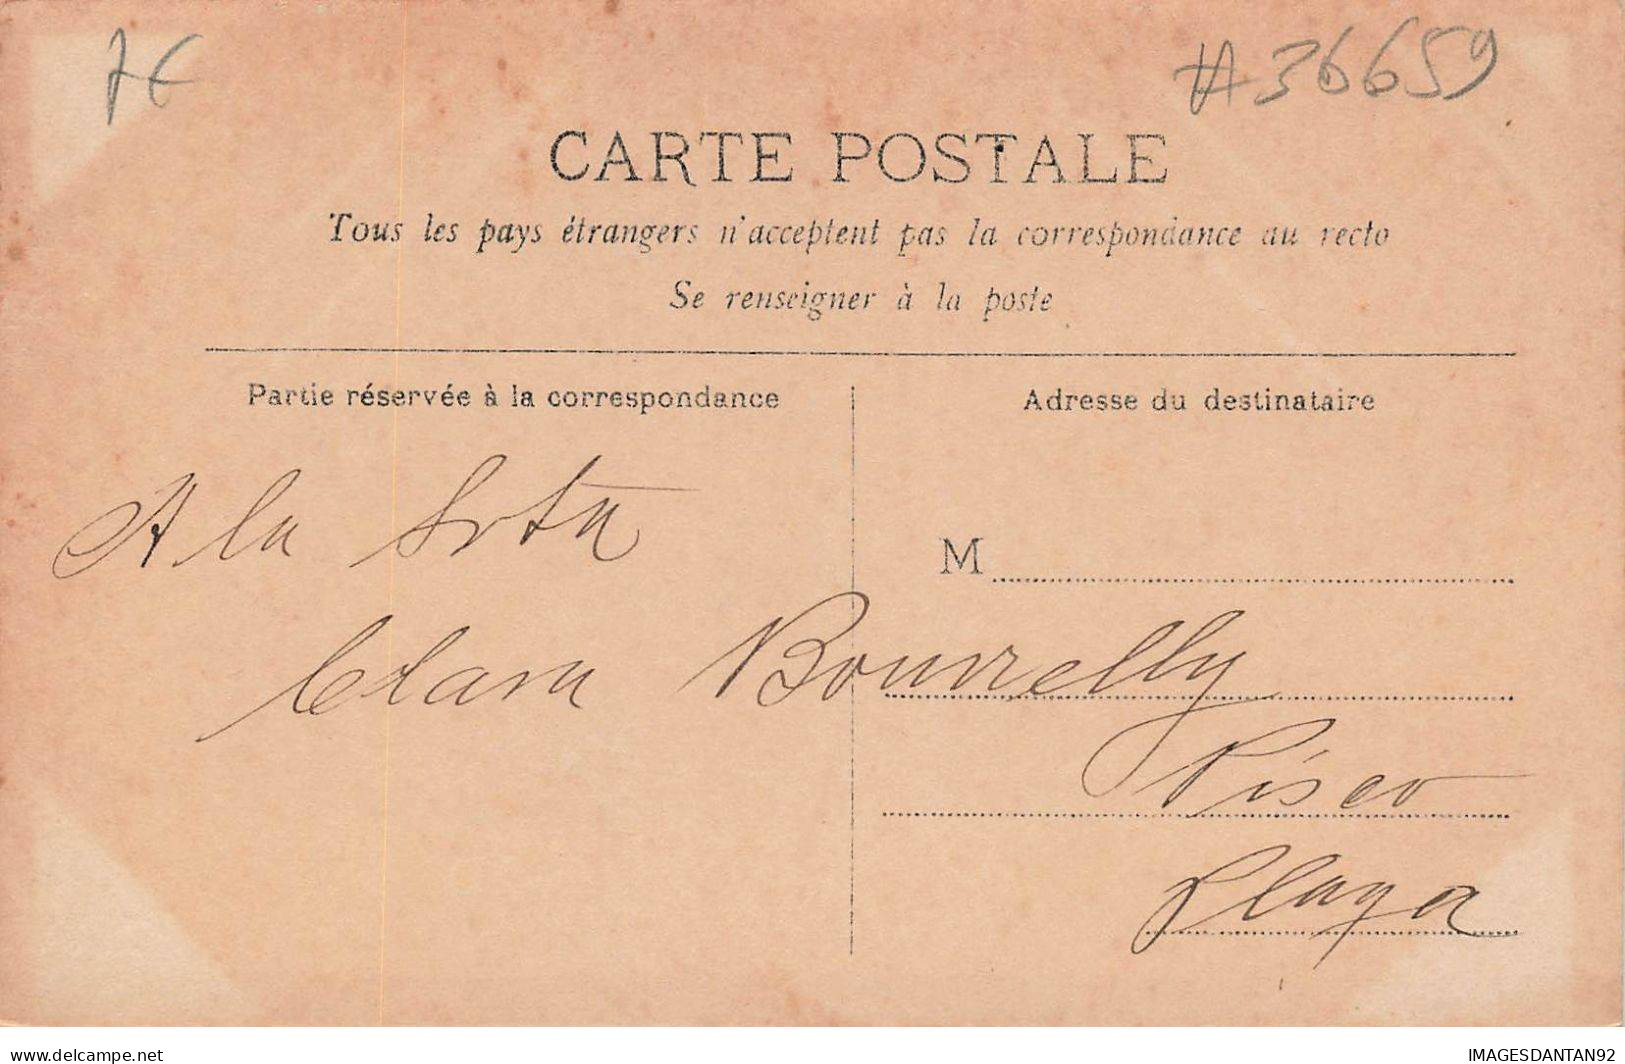 7€
#36659
CARTE POSTALE
Tous les pays étrangers n'acceptent pas la correspondance au recto
Se renseigner à la poste
Partie réservée à la correspondance
Adresse du destinataire
A la Srta
M
Clara Bourrelly
Pisco
Playa
www.delcampe.net
IMAGESDANTAN92